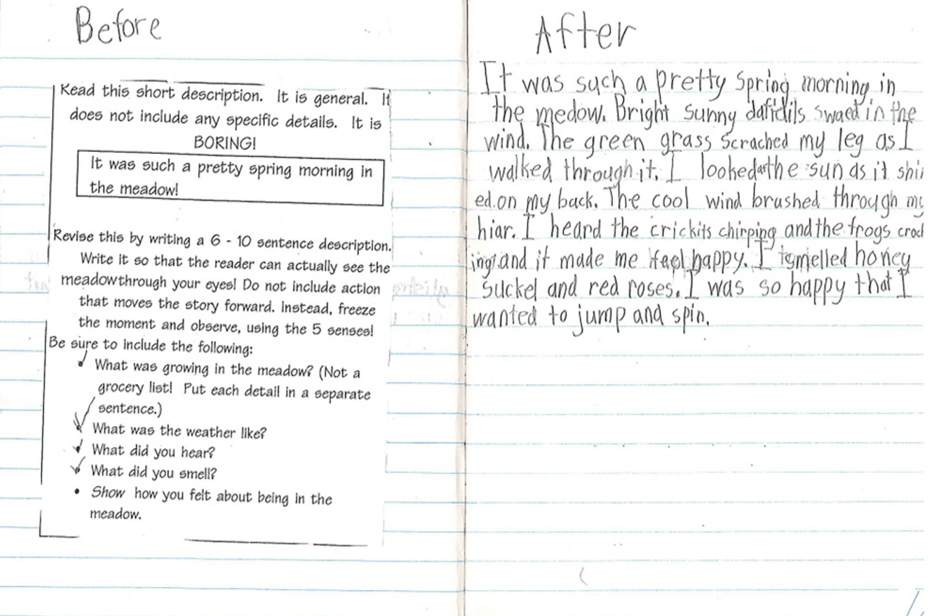 Before
Read this short description. It is general. It
does not include any specific details. It is
BORING!
It was such a pretty spring morning in
the meadow!
Revise this by writing a 6 - 10 sentence description.
Write it so that the reader can actually see the
meadowthrough your eyes! Do not include action
that moves the story forward. Instead, freeze
the moment and observe, using the 5 senses!
Be sure to include the following:
What was growing in the meadow? (Not a
grocery list! Put each detail in a separate
sentence.)
What was the weather like?
What did you hear?
What did you smell?
• Show how you felt about being in the
meadow.
After
It was such a pretty spring morning in
the medow. Bright sunny dafidils swaed in the
wind. The green grass scrached my leg as I
walked through it. I looked at the sun as it shin
ed on my back. The cool wind brushed through my
hiar. I heard the crickits chirping and the frogs croa
ing and it made me feel happy. I smelled honey
suckel and red roses. I was so happy that I
wanted to jump and spin.